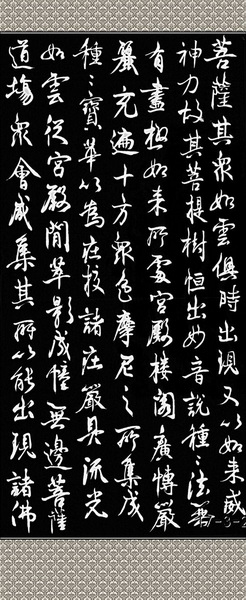 菩薩其眾如雲俱時出現又以如來威
神力故其菩提樹恒出妙音說種種法無
有盡極如來所處宮殿樓閣廣博嚴
麗充遍十方眾色摩尼之所集成
種種寶華以為莊校諸莊嚴具流光
如雲從宮殿間萃影成幢無邊菩薩
道場眾會咸集其所以能出現諸佛